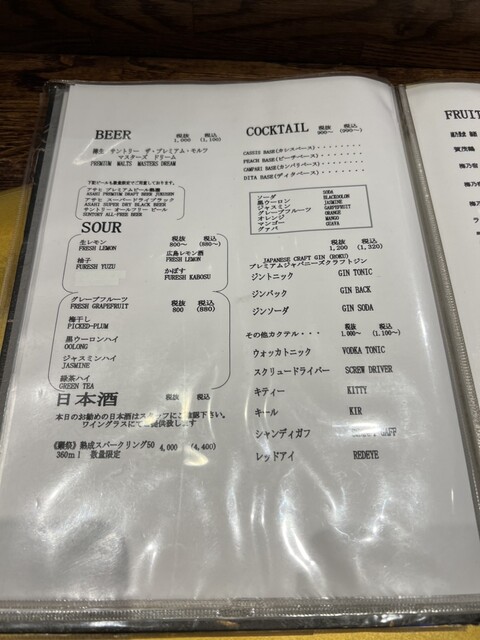 BEER 税抜 税込
1,000 (1,100)
樽生 サントリー ザ・プレミアム・モルツ
マスターズ ドリーム
PREMIUM MALTS MASTERS DREAM
下記ビールも数量限定でご用意しております。
アサヒ プレミアムビール熟撰
ASAHI PREMIUM DRAFT BEER JUKUSEN
アサヒ スーパードライブラック
ASAHI SUPER DRY BLACK BEER
サントリー オールフリー ビール
SUNTORY ALL-FREE BEER
SOUR 税抜 税込
800～ (880～)
生レモン
FRESH LEMON
広島レモン酒
FRESH LEMON
柚子
FURESH YUZU
かぼす
FURESH KABOSU
グレープフルーツ
FRESH GRAPEFRUIT
税抜 税込
800 (880)
梅干し
PICKED-PLUM
黒ウーロンハイ
OOLONG
ジャスミンハイ
JASMINE
緑茶ハイ
GREEN TEA
日本酒 税抜 税込
本日のお勧めの日本酒は
ワイングラスにて
《獺祭》熟成スパークリング50 4,000 (4,400)
360ml 数量限定
COCKTAIL 税抜 税込
900～ (990～)
CASSIS BASE(カシスベース)
PEACH BASE(ピーチベース)
CAMPARI BASE(カンパリベース)
DITA BASE(ディタベース)
ソーダ SODA
黒ウーロン
ジャスミン JASMINE
グレープフルーツ
オレンジ ORANGE
マンゴー MANGO
グァバ GUAVA
税抜 税込
1,200 (1,320)
JAPANESE CRAFT GIN (ROKU)
プレミアムジャパニーズクラフトジン
ジントニック GIN TONIC
ジンバック GIN BACK
ジンソーダ GIN SODA
その他カクテル・・・ 税抜 税込
1,000～ (1,100～)
ウォッカトニック VODKA TONIC
スクリュードライバー SCREW DRIVER
キティー KITTY
キール KIR
シャンディガフ GAFF
レッドアイ REDEYE
FRUIT